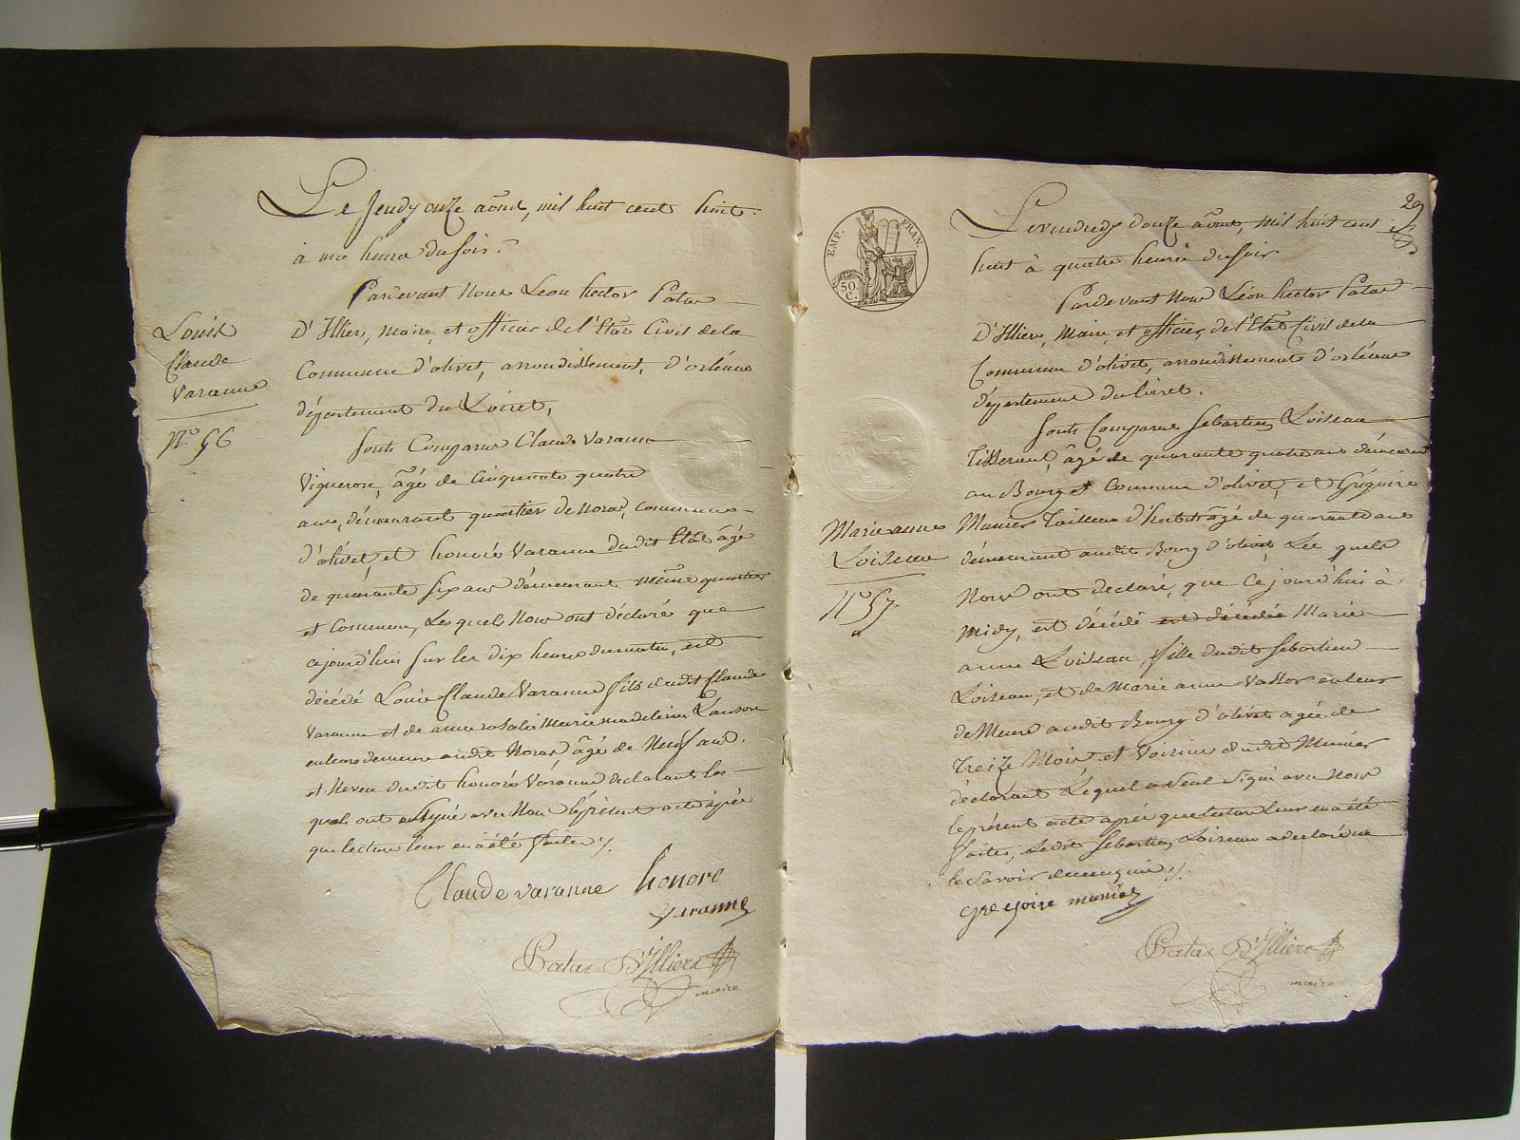 Le Jeudy onze août, mil huit cent huit
à une heure du soir.
Pardevant Nous Léon hector Patas
D'Illiers, maire, et officier de l'Etat Civil de la
Commune d'olivet, arrondissement, d'orléans
département du Loiret,
Louis
Claude
Varanne
N.° 56
Sont Comparus Claude Varanne
Vigneron, âgé de Cinquante quatre
ans, démeurant quartier de Noras, commune
d'olivet, et honoré Varanne dudit Etat âgé
de quarante six ans démeurant même quartier
et Commune, Lesquels Nous ont déclaré que
cejourd'hui sur les dix heures du matin, est
décédé Louis Claude Varanne fils dudit Claude
Varanne et de anne rosalie Marie madeleine
en leur demeure audit Noras âgé de Neuf ans.
et Neveu dudit honoré Varanne déclarants les
quels ont signé avec Nous le présent acte après
que lecture leur en a été faite ./.
Claude varanne honoré
varanne
Patas D'Illiers
maire
29
EMP. FRAN.
50.
C.
Le vendredy douze août, mil huit cent
huit à quatre heures du soir
Pardevant Nous Léon hector Patas
D'Illiers, Maire, et officier, de l'Etat Civil de la
Commune d'olivet, arrondissement d'orléans
département du loiret.
Sont Comparus Sebastien Loiseau
Tisserant, âgé de quarante quatre ans démeurant
au Bourg et Commune d'olivet, et Grégoire
Marie anne
Loiseau
N.° 57.
Munier Tailleur d'habit âgé de quarante ans
démeurant audit Bourg d'olivet, Les quels
Nous ont declaré, que Cejourd'hui à
midy, est décédé est décédée Marie
anne Loiseau, fille dudit Sebastien
Loiseau, et de Marie anne Vallos en leur
de Meure audit Bourg d'olivet agée de
Treize Mois, et Voisine dudit Munier
déclarant Lequel a Seul Signé avec Nous
le présent acte après que lecture leur en a été
faite, Ledit Sebastien Loiseau a declaré ne
le savoir de ce enquis ./.
Gregoire munier
Patas D'Illiers
maire